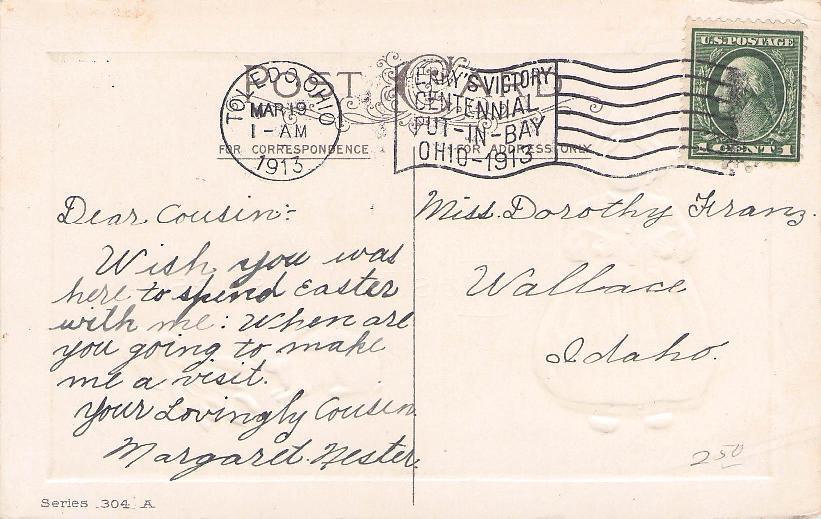 POST CARD
TOLEDO, OHIO
MAR 19
1-AM
1913
ERRY'S VICTORY
CENTENNIAL
PUT-IN-BAY
OHIO-1913
U.S. POSTAGE
1 CENT 1
FOR CORRESPONDENCE
FOR ADDRESS ONLY
Dear Cousin:-
Wish you was
here to spend Easter
with me: When are
you going to make
me a visit.
Your Lovingly Cousin
Margaret. Nester.
Miss. Dorothy Kranz.
Wallace
Idaho.
2 50
Series 304 A